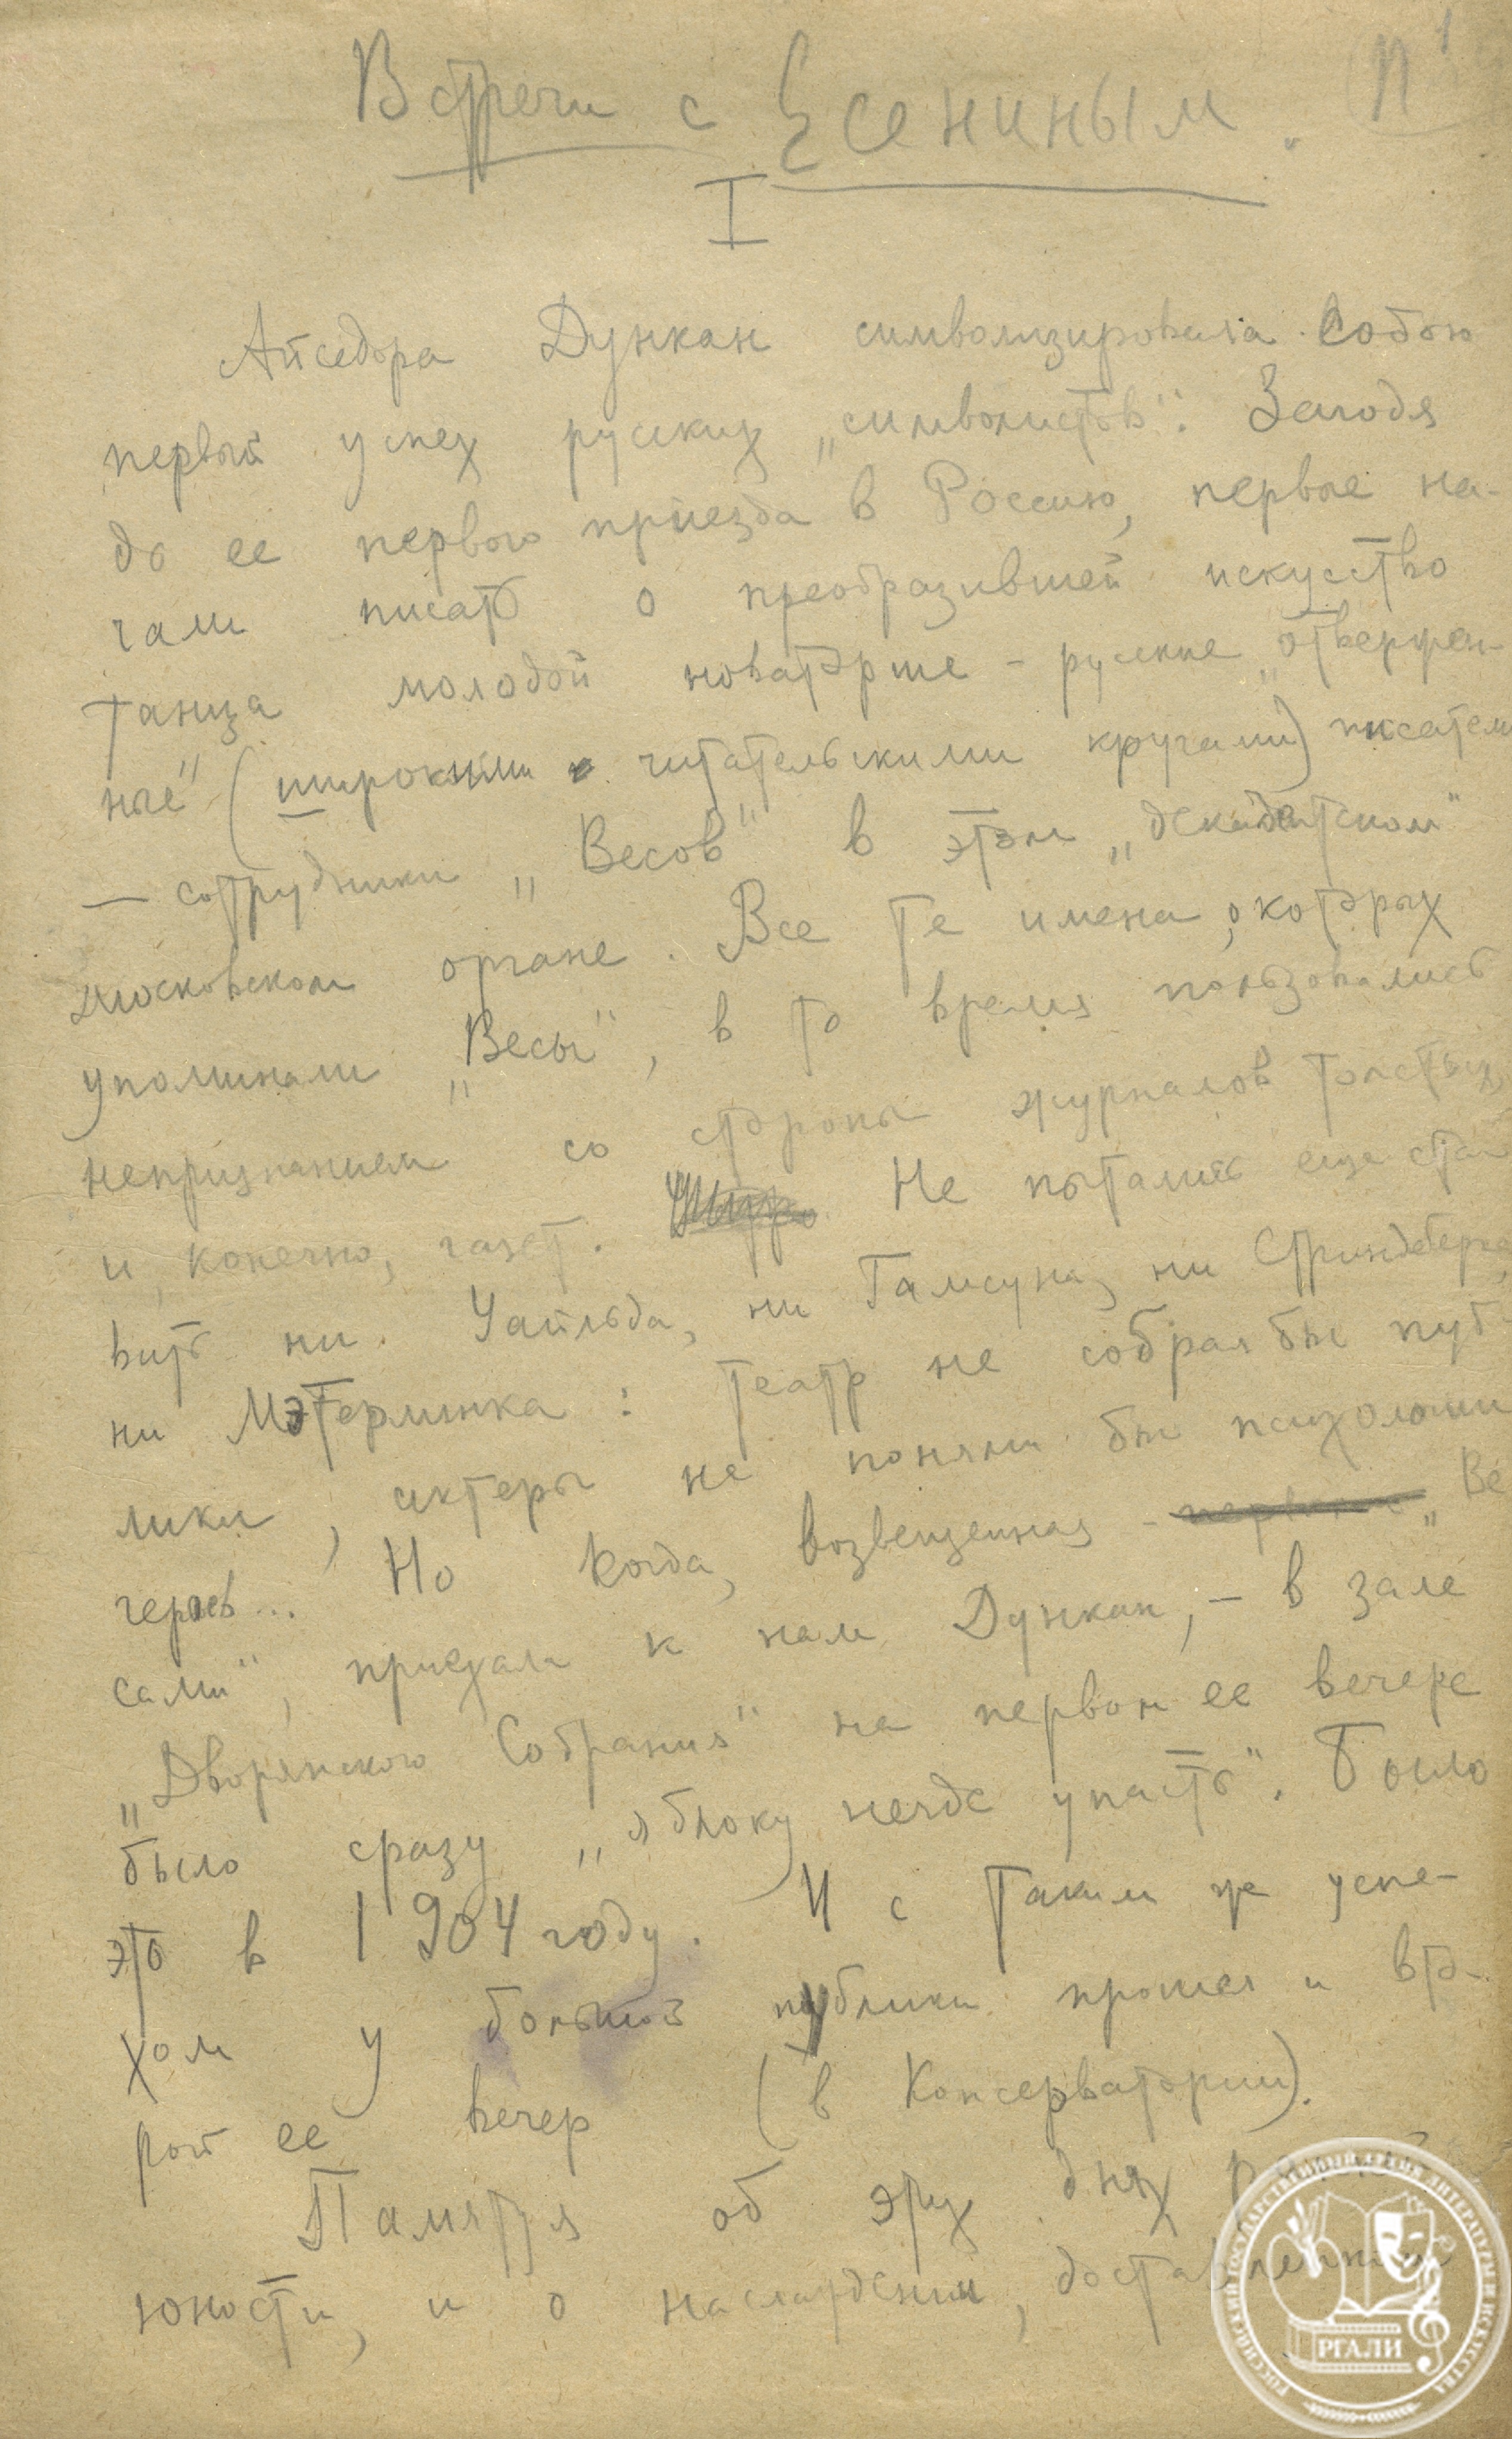 Встречи с Есениным.
1
I
Айседора Дункан символизировала собою
первый успех русских „символистов". Загодя
до ее первого приезда в Россию, первые на-
чали писать о преобразившей искусство
танца молодой новаторше - русские „отвержен-
ные" (широкими читательскими кругами) писатели
— сотрудники „Весов" в этом „декадентском"
московском органе. Все те имена, о которых
упоминали „Весы", в то время пользовались
непризнанием со стороны журналов толстых
и, конечно, газет. Не пытались еще ста
вить ни Уайльда, ни Гамсуна, ни Стриндберга,
ни Мэтерлинка: театр не собрал бы пуб-
лики, актеры не поняли бы психологии
героев... Но когда, возвещенная - „Ве
сами", приехала к нам Дункан, - в зале
„Дворянского Собрания" на первом ее вечере
было сразу „яблоку негде упасть". Было
это в 1904 году. И с таким же успе-
хом у большой публики прошел и вто-
рой ее вечер (в Консерватории).
Памятуя об этих днях
юности, и о наслаждении, доставленном
РОССИЙСКИЙ ГОСУДАРСТВЕННЫЙ АРХИВ ЛИТЕРАТУРЫ И ИСКУССТВА
РГАЛИ